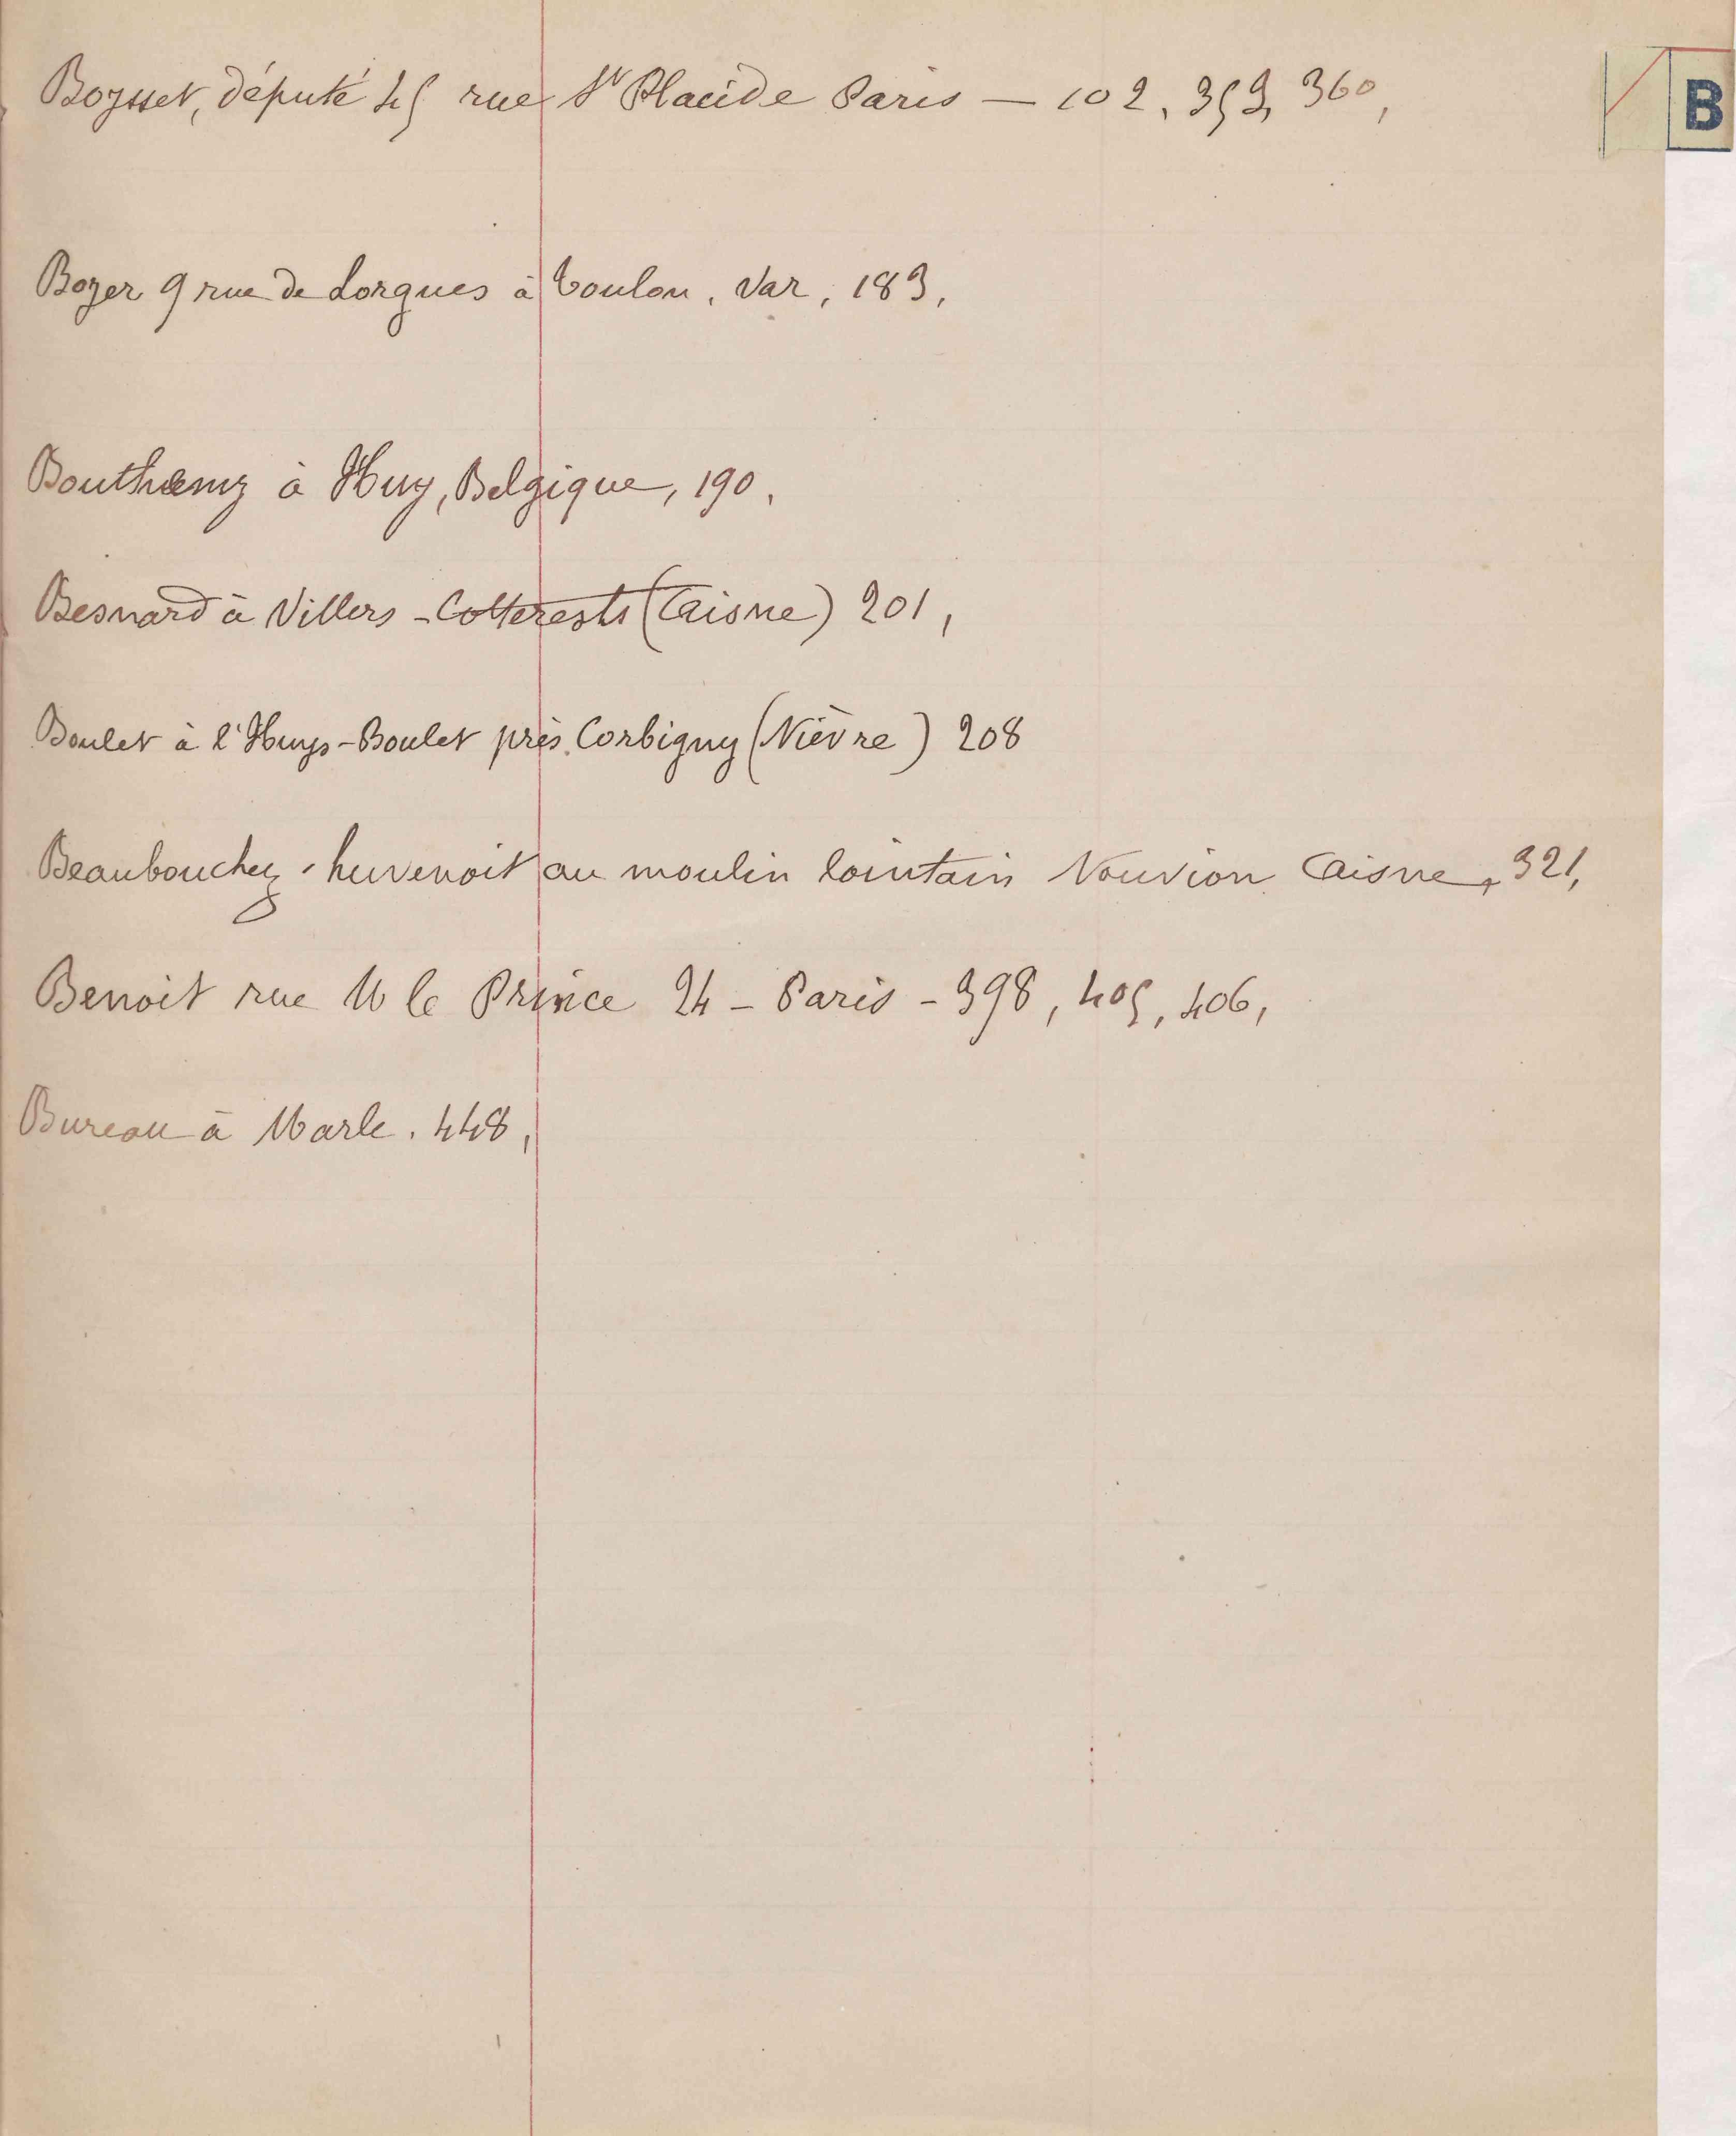 Boysset, député 45 rue St Placide Paris — 102, 359, 360,
B
Boyer 9 rue de Lorgues à Toulon, Var, 183,
Bouthemy à Huy, Belgique, 190,
Besnard à Villers-Cotterests (Aisne) 201,
Boulet à l'Huys-Boulet près Corbigny (Nièvre) 208
Beaubouchez-huvenoit au moulin lointain Nouvion Aisne, 321,
Benoit rue M le Prince 24 – Paris – 398, 405, 406,
Bureau à Marle. 448,